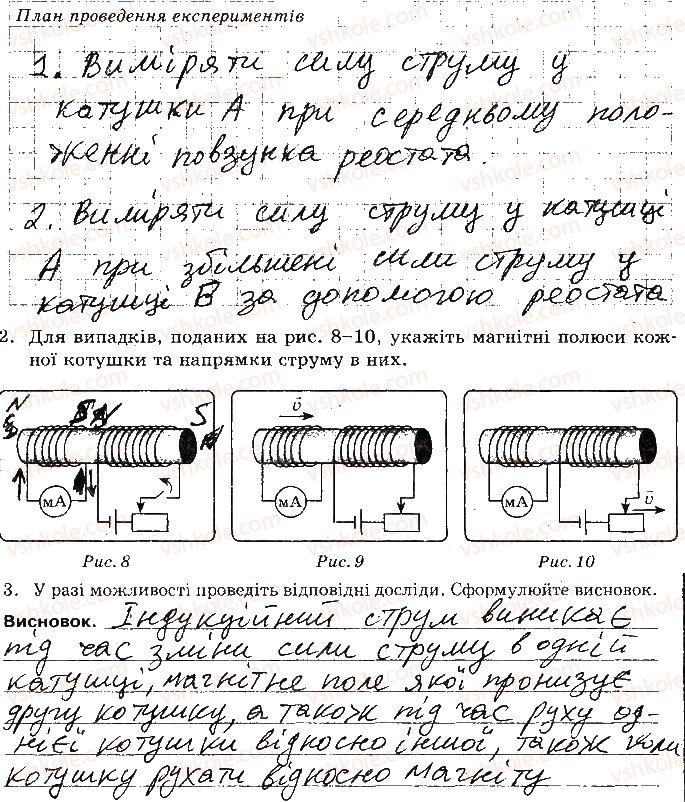 План проведення експериментів
1. Виміряти силу струму у
катушки А при середньому поло-
женні повзунка реостата.
2. Виміряти силу струму у катушці
А при збільшені сили струму у
катушці В за допомогою реостата
2. Для випадків, поданих на рис. 8–10, укажіть магнітні полюси кож-
ної котушки та напрямки струму в них.
N S
υ
мА мА мА
υ
Рис. 8 Рис. 9 Рис. 10
3. У разі можливості проведіть відповідні досліди. Сформулюйте висновок.
Висновок. Індукційний струм виникає
під час зміни сили струму в одній
катушці, магнітне поле якої пронизує
другу котушку, а також під час руху од-
нієї котушки відносно іншої, також коли
котушку рухати відносно магніту